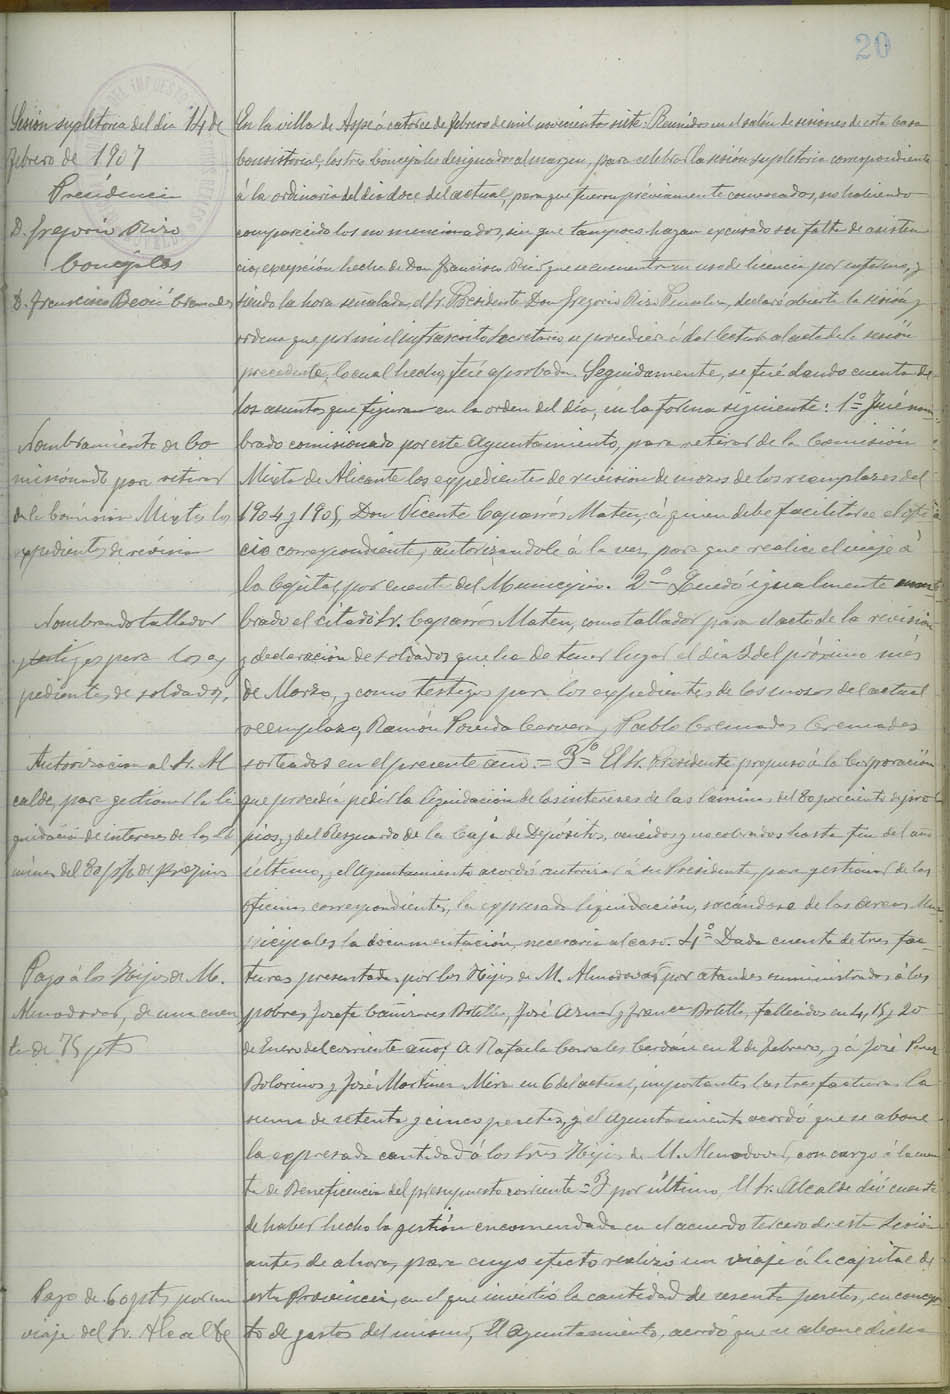 20
Sesión supletoria del dia 14 de
febrero de 1907
Presidencia
D. Gregorio Rizo
Concejales
D. Francisco Cremades
Nombramiento de Co-
misionado para retirar
de la Comisión Mixta los
expedientes de revisión
Nombrando tallador
y testigos para los ex
pedientes de soldados,
Autorizacion al Sr. Al
calde, para gestionar la li
quidación de intereses de las lá
minas del 80 p% de propios
Pago á los Hijos de M.
Almodovar, de una cuen
ta de 75 pts
Pago de 60 pts por un
viaje del Sr. Alcalde
En la villa de Aspe á catorce de febrero de mil novecientos siete: Reunidos en el salón de sesiones de esta Casa
Consistorial, los tres Concejales designados al margen, para celebrar la sesión supletoria correspondiente
á la ordinaria del dia doce del actual, para que fueron préviamente convocados, no habiendo
comparecido los no mencionados, sin que tampoco hayan excusado su falta de asisten
cia, excepción hecha de Don Francisco que se encuentra en uso de licencia por enfermo, y
siendo la hora señalada, el Sr. Presidente Don Gregorio Rizo Penalva, declaró abierta la sesión y
ordena que por mi el infrascrito Secretario se procediera á dar lectura al acta de la sesión
precedente, lo cual hecho, fué aprobada. Seguidamente, se fué dando cuenta de
los asuntos que figuran en la orden del dia, en la forma siguiente: 1º = Fué nom-
brado comisionado por este Ayuntamiento, para retirar de la Comisión
Mixta de Alicante los expedientes de revisión de mozos de los reemplazos del
1904 y 1905, Don Vicente Caparrós Mateu, á quien debe facilitarse el ofi
cio correspondiente, autorizandole á la vez, para que realice el viaje á
la Capital, por cuenta del Municipio. 2º = Quedó igualmente nom
brado el citado Sr. Caparrós Mateu, como tallador para el acto de la revisión
y declaración de soldados que ha de tener lugar el dia 3 del próximo més
de Marzo, y como testigos para los expedientes de los mozos del actual
reemplazo, Ramón Poveda Cervera, Pablo Cremades Cremades
sorteados en el presente año. = 3º = El Sr. Presidente propuso á la Corporación
que procedia pedir la liquidación de los intereses de las láminas del 80 por ciento de pro
pios, y del Resguardo de la Caja de Depósitos, vencidos y no cobrados hasta fin del año
último, y el Ayuntamiento acordó autorizar á su Presidente, para gestionar de las
oficinas correspondientes, la expresada liquidación, sacándose de las arcas Mu-
nicipales la documentación, necesaria al caso. 4º = Dada cuenta de tres fac-
turas presentadas por los Hijos de M. Almodovar por ataudes suministrados á los
pobres Josefa Cañizares Botella, José Aznar y Franca Botella, fallecidos en 4, 15 y 20
de Enero del corriente año; A Rafaela Corrales Cerdán en 2 de febrero, y á José Perez
Bolorinos y José Martinez Mira en 6 del actual, importantes las tres facturas la
suma de setenta y cinco pesetas, y el Ayuntamiento acordó que se abone
la expresada cantidad á los Sres Hijos de M. Almodovar, con cargo á la cuen
ta de Beneficencia del presupuesto corriente = Y por último, El Sr. Alcalde dió cuenta
de haber hecho la gestión encomendada en el acuerdo tercero de esta Sesión
antes de ahora, para cuyo efecto realizó un viaje á la capital de
esta Provincia, en el que invirtió la cantidad de sesenta pesetas, en concep
to de gastos del mismo, El Ayuntamiento, acordó que se abone dicha